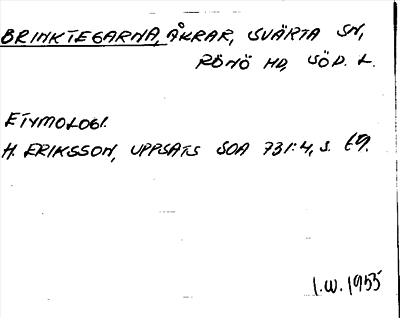 BRINKTEGARNA, ÅKRAR, SVÄRTA SN,
RÖNÖ HD, SÖD. L.
ETYMOLOGI.
H. ERIKSSON, UPPSATS SOA 731:4, S. 69.
I.W. 1955